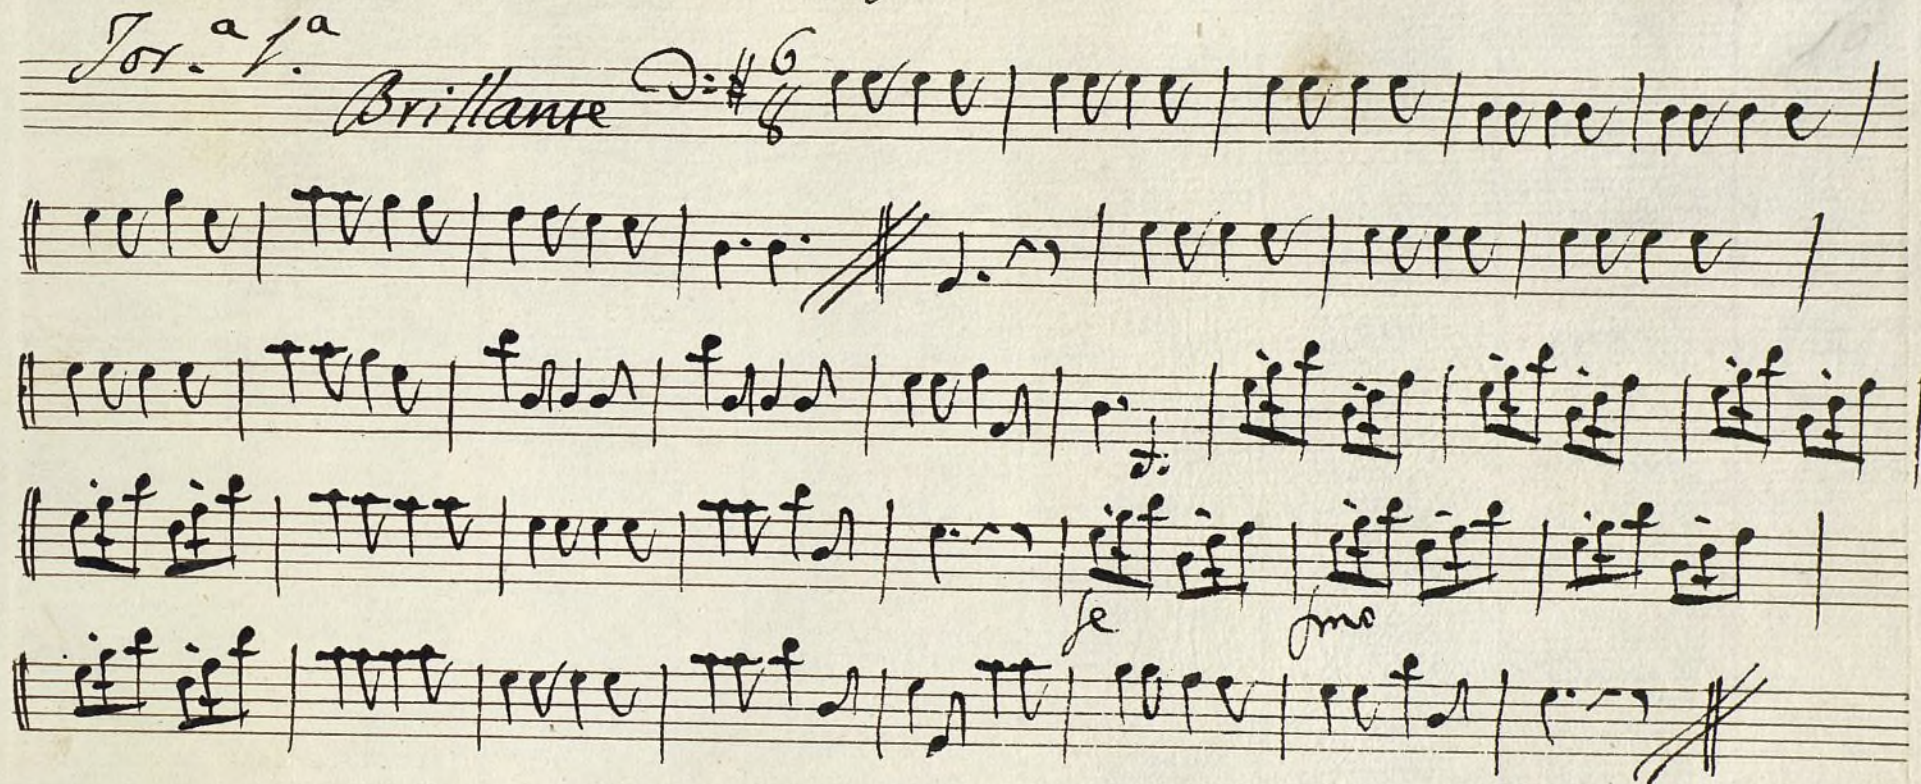 Jor.ª 1.ª
Brillante 6/8
fe fmo